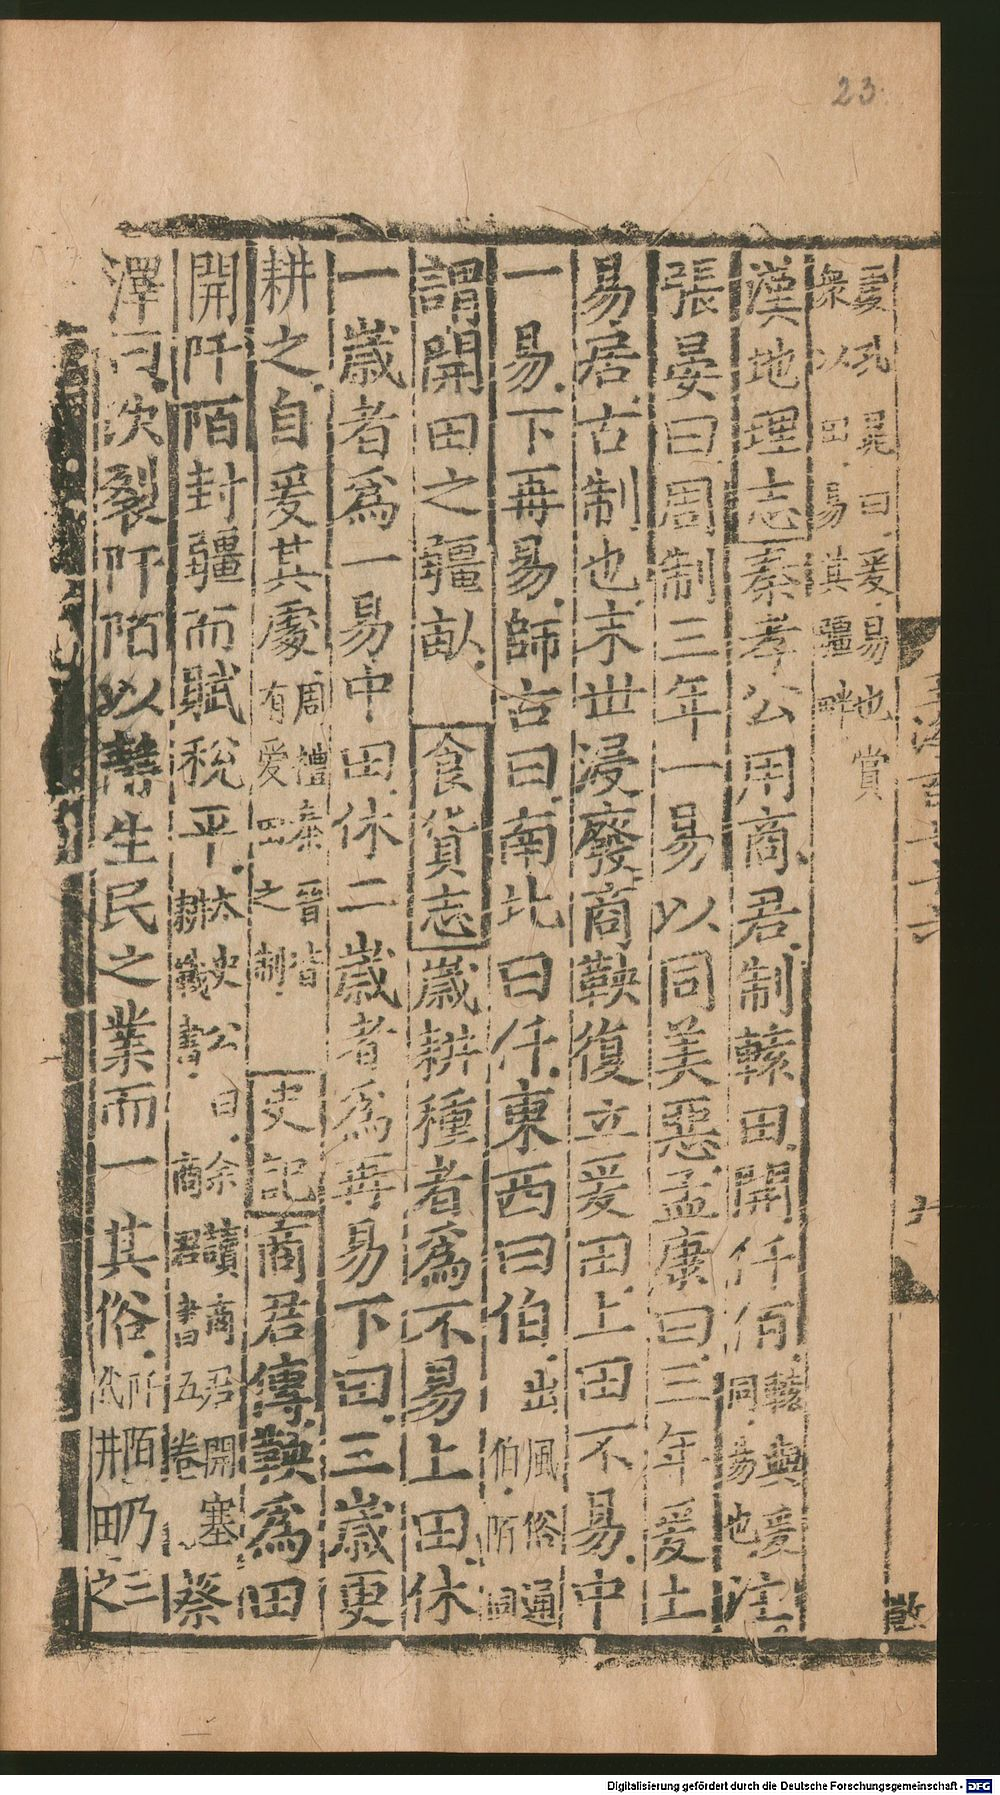 23
爰孔晁曰爰易也賞
衆以田易其疆畔
漢地理志秦孝公用商君制轅田開仟佰轅與爰同易也注
張晏曰周制三年一易以同美惡孟康曰三年爰土
易居古制也末世浸廢商鞅復立爰田上田不易中
一易下再易師古曰南北曰仟東西曰伯出風俗通伯陌同
謂開田之疆畝食貨志歲耕種者爲不易上田休
一歲者爲一易中田休二歲者爲再易下田三歲更
耕之自爰其處周禮秦晉皆有爰田之制史記商君傳鞅爲田
開阡陌封疆而賦稅平太史公曰余讀商君開塞耕戰書商君書五卷蔡
澤曰決裂阡陌以靜生民之業而一其俗阡陌乃三代井田之
Digitalisierung gefördert durch die Deutsche Forschungsgemeinschaft - DFG